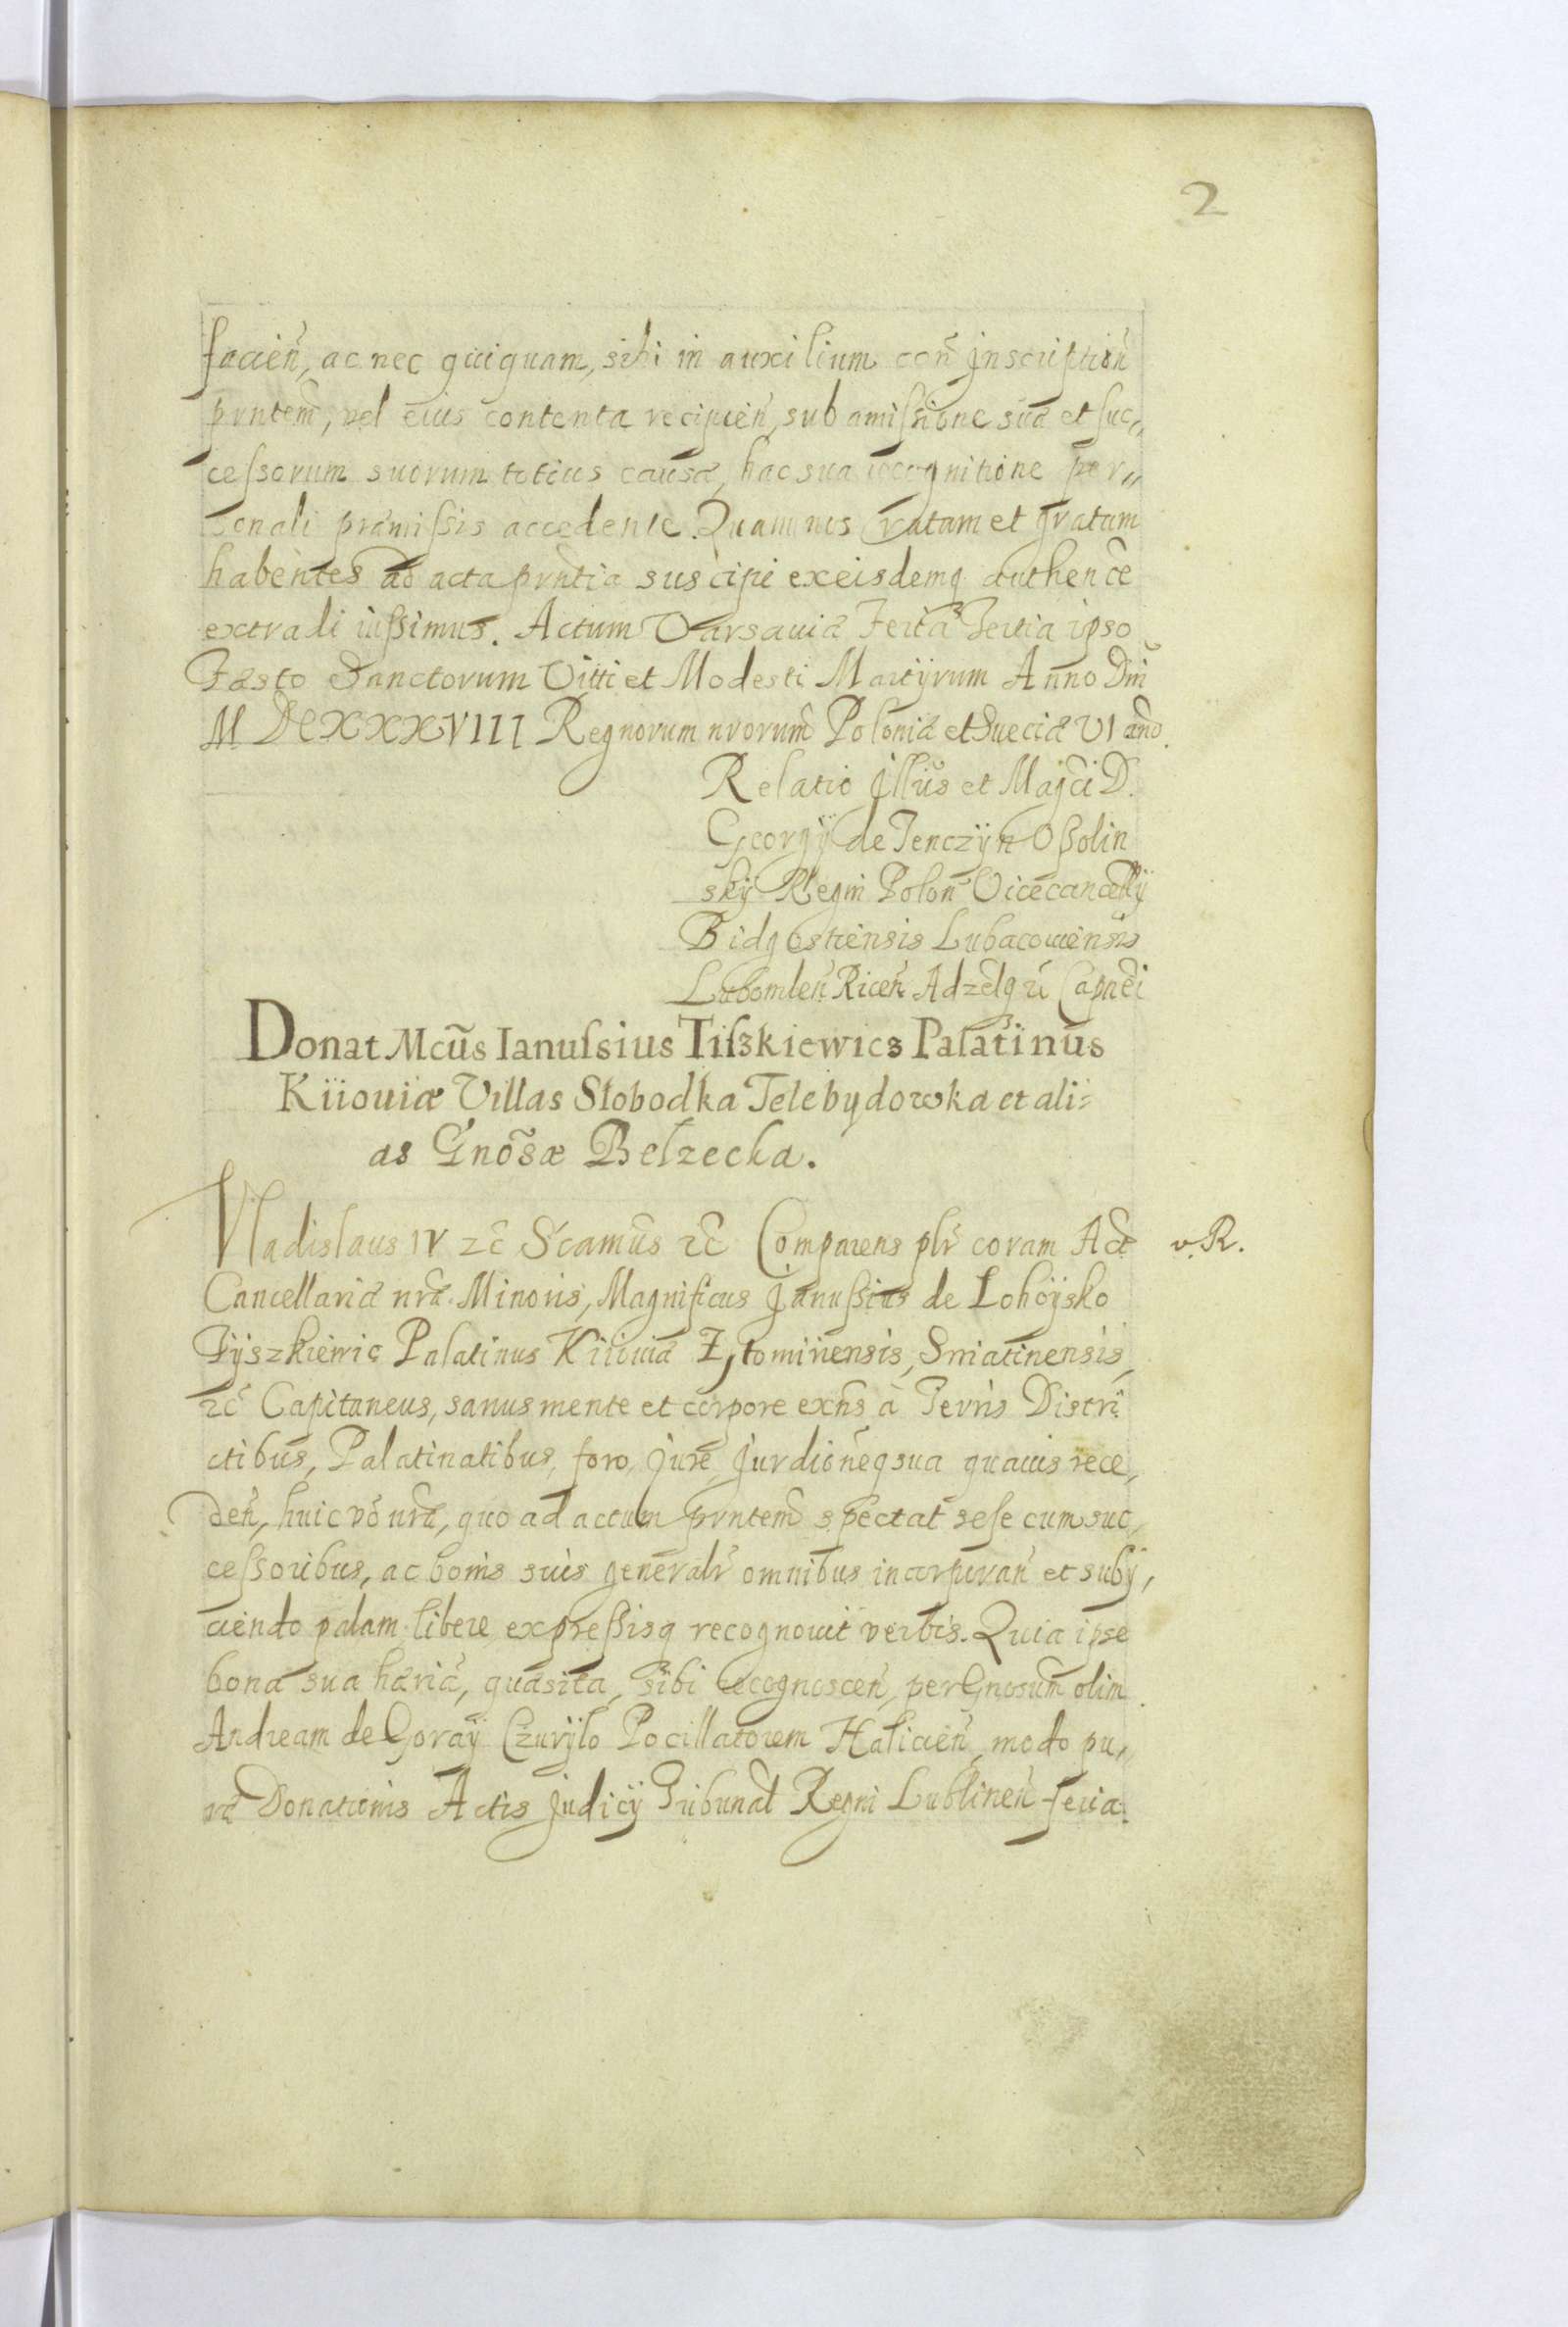 2
facień, ac nec quiquam, sibi in auxilium coñ Inscriptioñ
prntem̃, vel eius contenta recipień, sub amiſsione sua et suc„
ceſsorum suorum totius causæ, hac sua recognitione per„
sonali præmiſsis accedente. Quam nos ratam et gratam
habentes ad acta prntia suscipi exeisdemq authence
extradi iuſsimus. Actum Varsaviæ Feria Tertia ipso
Festo Sanctorum Vitti et Modesti Martÿrum Anno Dñi
MDCXXXVIII Regnorum nrorum̃ Poloniæ et Sueciæ VI año.
Relatio Illũs et Magci D.
Georgÿ de Tenczÿn Oſsolin
skÿ Regni Poloñ Vicecancellÿ
Bidgostiensis Lubacoviensis
Lubomleñ Riceñ Adzelq̃ Capnei
Donat Mcũs Ianuſsius Tiſzkiewicz Palatinus
Kiioviæ Villas Slobodka Telebydowka et ali=
as Gnõsæ Belzecka.
Vladislaus IV zc̃ S'camus zc̃ Comparens plr̃ coram Act
v. R.
Cancellariæ nræ Minoris, Magnificus Januſsius de Lohoÿsko
Tÿszkiewic Palatinus Kiioviæ Zÿtomiriensis, Sniatinensis,
zc̃ Capitaneus, sanus mente et corpore exñs à Terris Distri
ctibus, Palatinatibus, foro, Jure Jurdioneq sua quavis rece,
deñ, huic vō nræ, quo ad actum prntem̃ spectat sese cum suc,
ceſsoribus, ac bonis suis generalr̃ omnibus incorporań et subÿ,
ciendo palam libere expreſsisq recognovit verbis. Quia ipse
bona sua hæria, quæsita, sibi recognosceń, per Gnosum̃ olim
Andream de Goraÿ Czurÿlo Pocillatorem Halicień, modo pu„
ræ Donationis Actis Judicÿ Tribunal Regni Lublineń feria